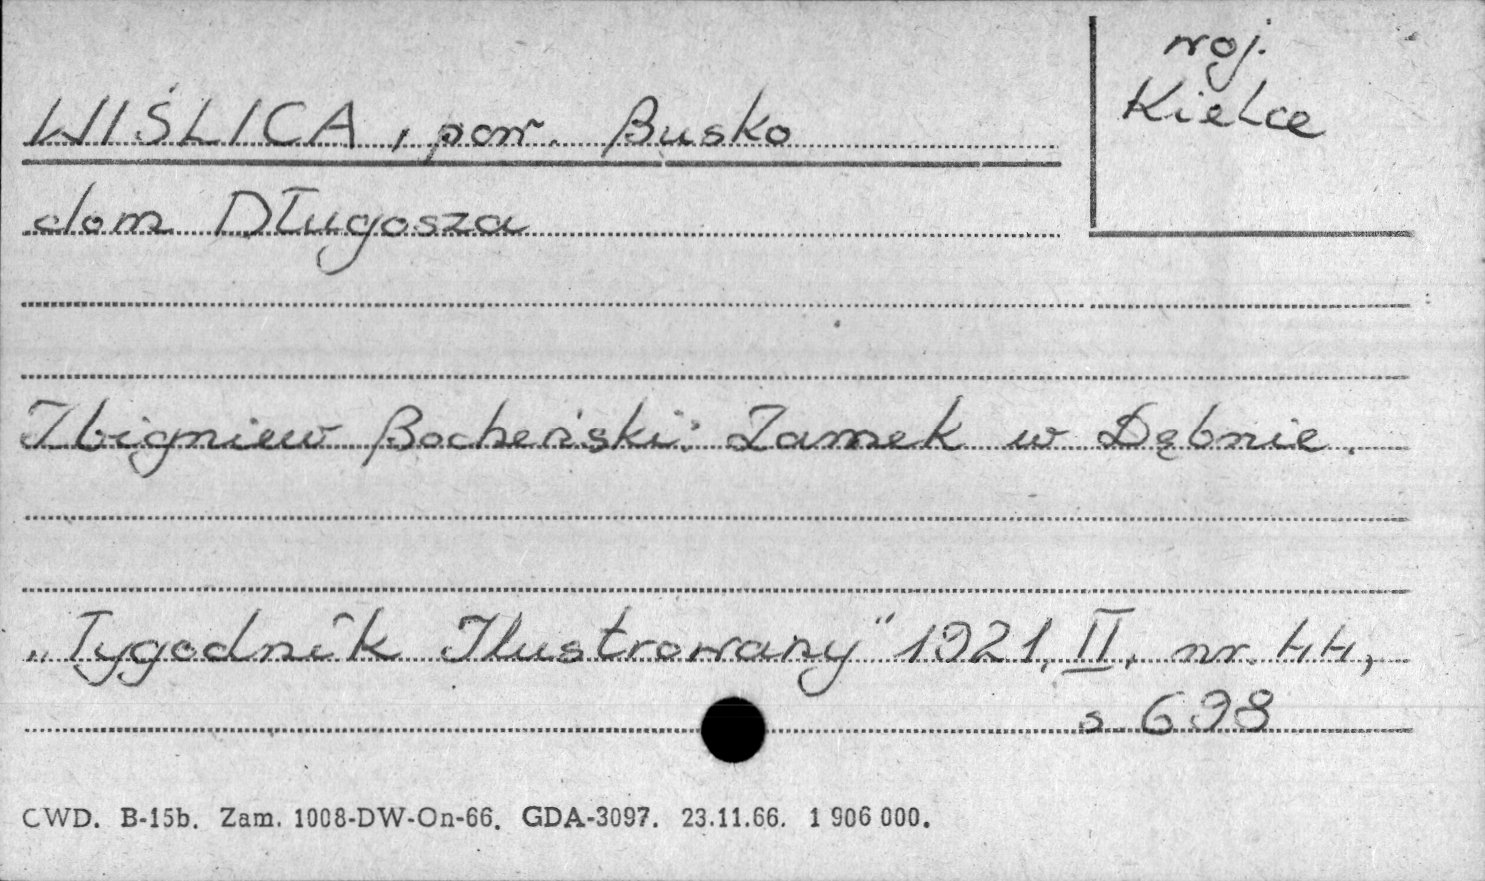 woj.
Kielce
WIŚLICA, pow. Busko
dom Długosza
Zbigniew Bocheński: Zamek w Dębnie.
„Tygodnik Ilustrowany" 1921, II, nr. 44,
s 698
CWD. B-15b. Zam. 1008-DW-On-66. GDA-3097. 23.11.66. 1 906 000.